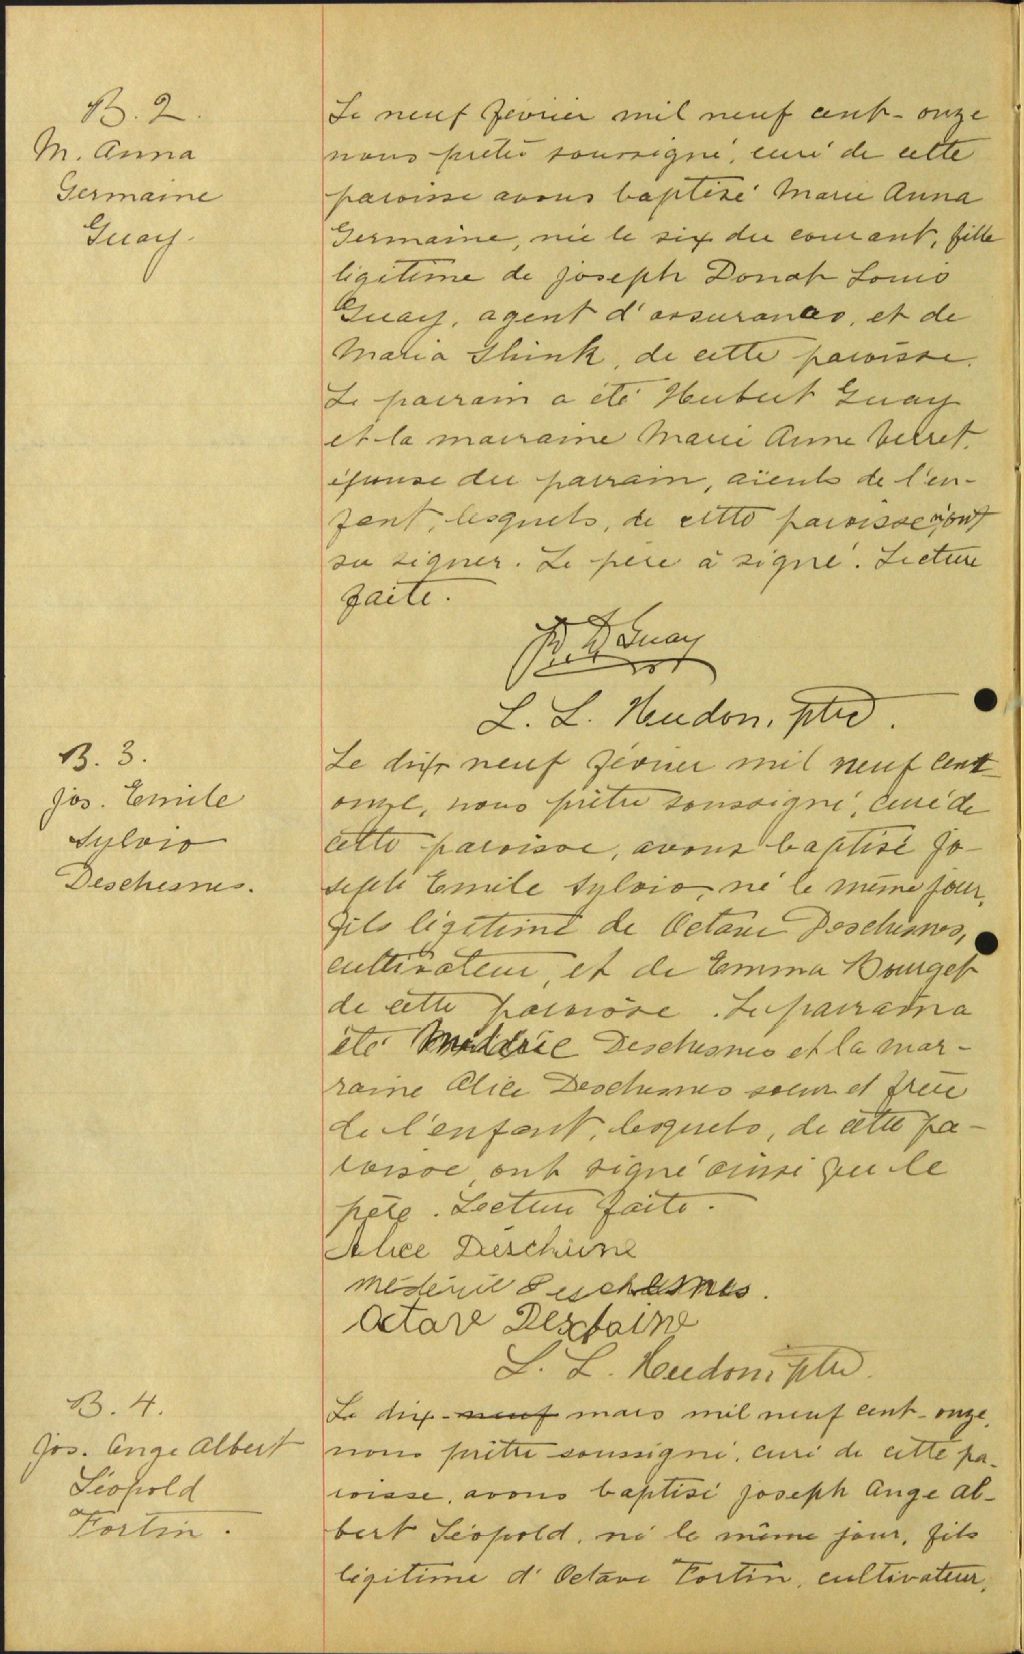 B. 2.
M. Anna
Germaine
Guay.
Le neuf février mil neuf cent-onze
nous prêtre soussigné, curé de cette
paroisse avons baptisé Marie Anna
Germaine, née le six du courant, fille
légitime de Joseph Donat Louis
Guay, agent d'assurances, et de
Maria Shink, de cette paroisse.
Le parrain a été Hubert Guay
et la marraine Marie Anne Verret,
épouse du parrain, aïeuls de l'en-
fant, lesquels, de cette paroisse, n'ont
su signer. Le père a signé. Lecture
faite.
D. Guay
L. L. Hudon, ptre.
B. 3.
Jos. Emile
Sylvio
Deschesnes.
Le dix neuf février mil neuf cent-
onze, nous prêtre soussigné, curé de
cette paroisse, avons baptisé Jo-
seph Emile Sylvio, né le même jour,
fils légitime de Octave Deschesnes,
cultivateur, et de Emma Bourget
de cette paroisse. Le parrain a
été Médéric Deschesnes et la mar-
raine Alice Deschesnes soeur et frère
de l'enfant, lesquels, de cette pa-
roisse, ont signé ainsi que le
père. Lecture faite.
Alice Deschene
Médéric Deschesnes.
Octave Deschaine
L. L. Hudon, ptre.
B. 4.
Jos. Ange Albert
Léopold
Fortin.
Le dix-neuf mars mil neuf cent-onze,
nous prêtre soussigné, curé de cette pa-
roisse, avons baptisé Joseph Ange Al-
bert Léopold, né le même jour, fils
légitime d'Octave Fortin, cultivateur,